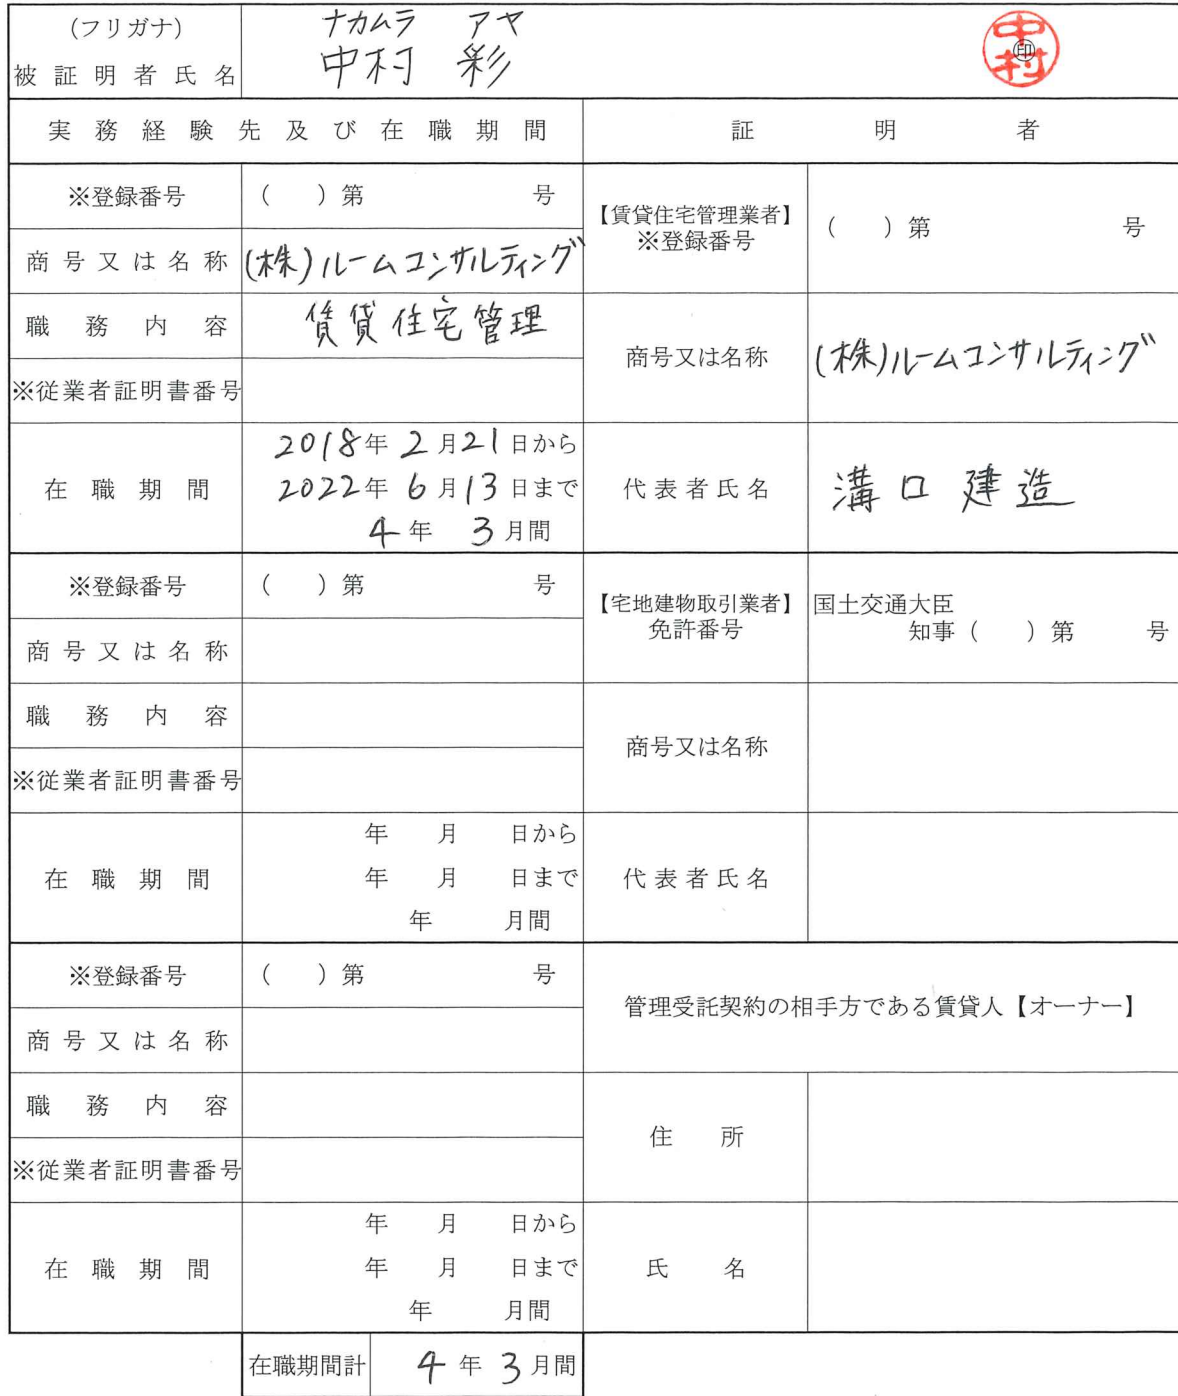 (フリガナ) ナカムラ アヤ
被証明者氏名 中村 彩 中村 ㊞
実務経験先及び在職期間 証明者
※登録番号 ( )第 号 【賃貸住宅管理業者】 ※登録番号 ( )第 号
商号又は名称 (株)ルームコンサルティング
職務内容 賃貸住宅管理 商号又は名称 (株)ルームコンサルティング
※従業者証明書番号
在職期間 2018年 2月21日から
2022年 6月13日まで 代表者氏名 溝口 建造
4年 3月間
※登録番号 ( )第 号 【宅地建物取引業者】 免許番号 国土交通大臣
知事( )第 号
商号又は名称
職務内容 商号又は名称
※従業者証明書番号
在職期間 年 月 日から
年 月 日まで 代表者氏名
年 月間
※登録番号 ( )第 号 管理受託契約の相手方である賃貸人【オーナー】
商号又は名称
職務内容 住所
※従業者証明書番号
在職期間 年 月 日から
年 月 日まで 氏名
年 月間
在職期間計 4年 3月間